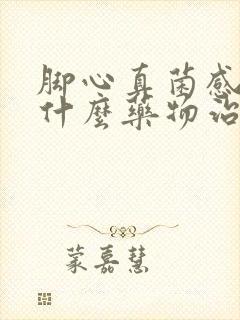 脚心真菌感
什麼藥物治
蒙嘉慧